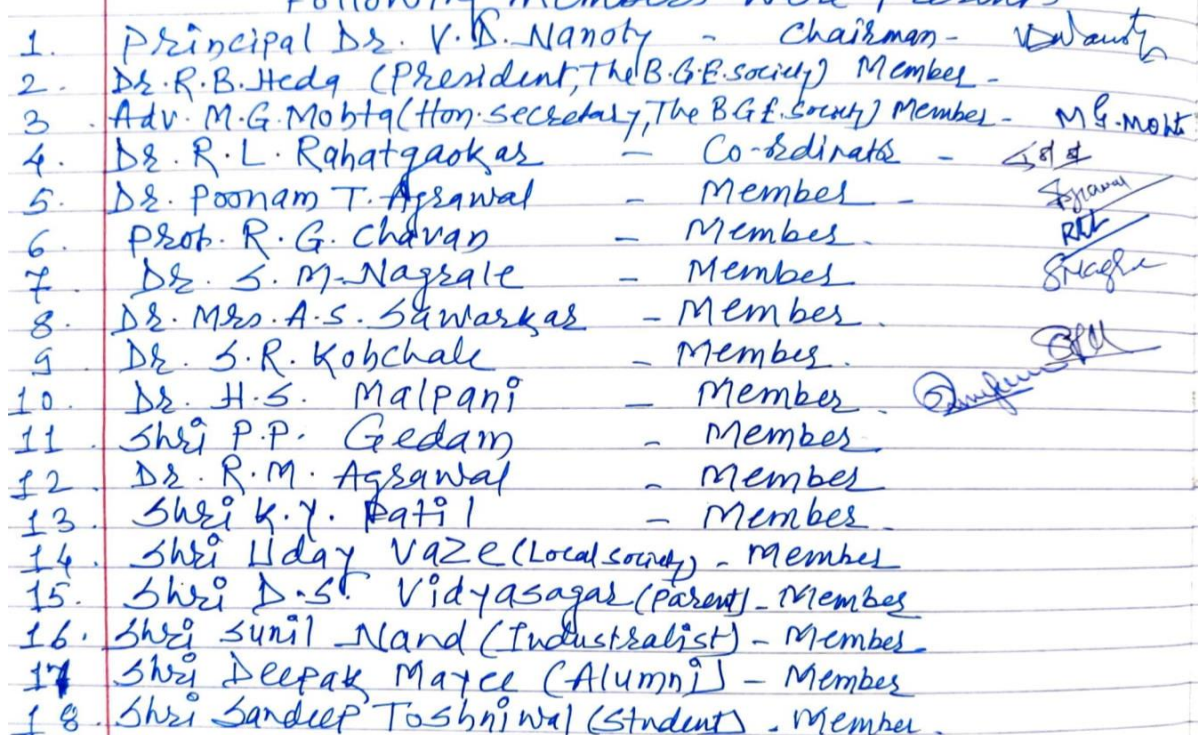 Following Members were present
1. Principal Dr. V.D. Nanoty - Chairman -
2. Dr. R.B. Heda (President, The B.G.E. Society) Member -
3. Adv. M.G. Mohta (Hon. Secretary, The B G E. Society) Member - M G. Mohta
4. Dr. R.L. Rahatgaokar - Co-ordinator -
5. Dr. Poonam T. Agrawal - Member - Agrawal
6. Prof. R.G. Chavan - Member.
7. Dr. S.M. Nagrale - Member
8. Dr. Mrs. A.S. Sawarkar - Member.
9 Dr. S.R. Kohchale - Member.
10. Dr. H.S. Malpani - Member.
11. Shri P.P. Gedam - Member
12. Dr. R.M. Agrawal - Member
13. Shri K.Y. Patil - Member.
14. Shri Uday Vaze (Local Society) - Member
15. Shri D.S. Vidyasagar (Parent) - Member
16. Shri Sunil Nand (Industralist) - Member
17 Shri Deepak Mayee (Alumni) - Member
18. Shri Sandeep Toshniwal (Student) - Member.